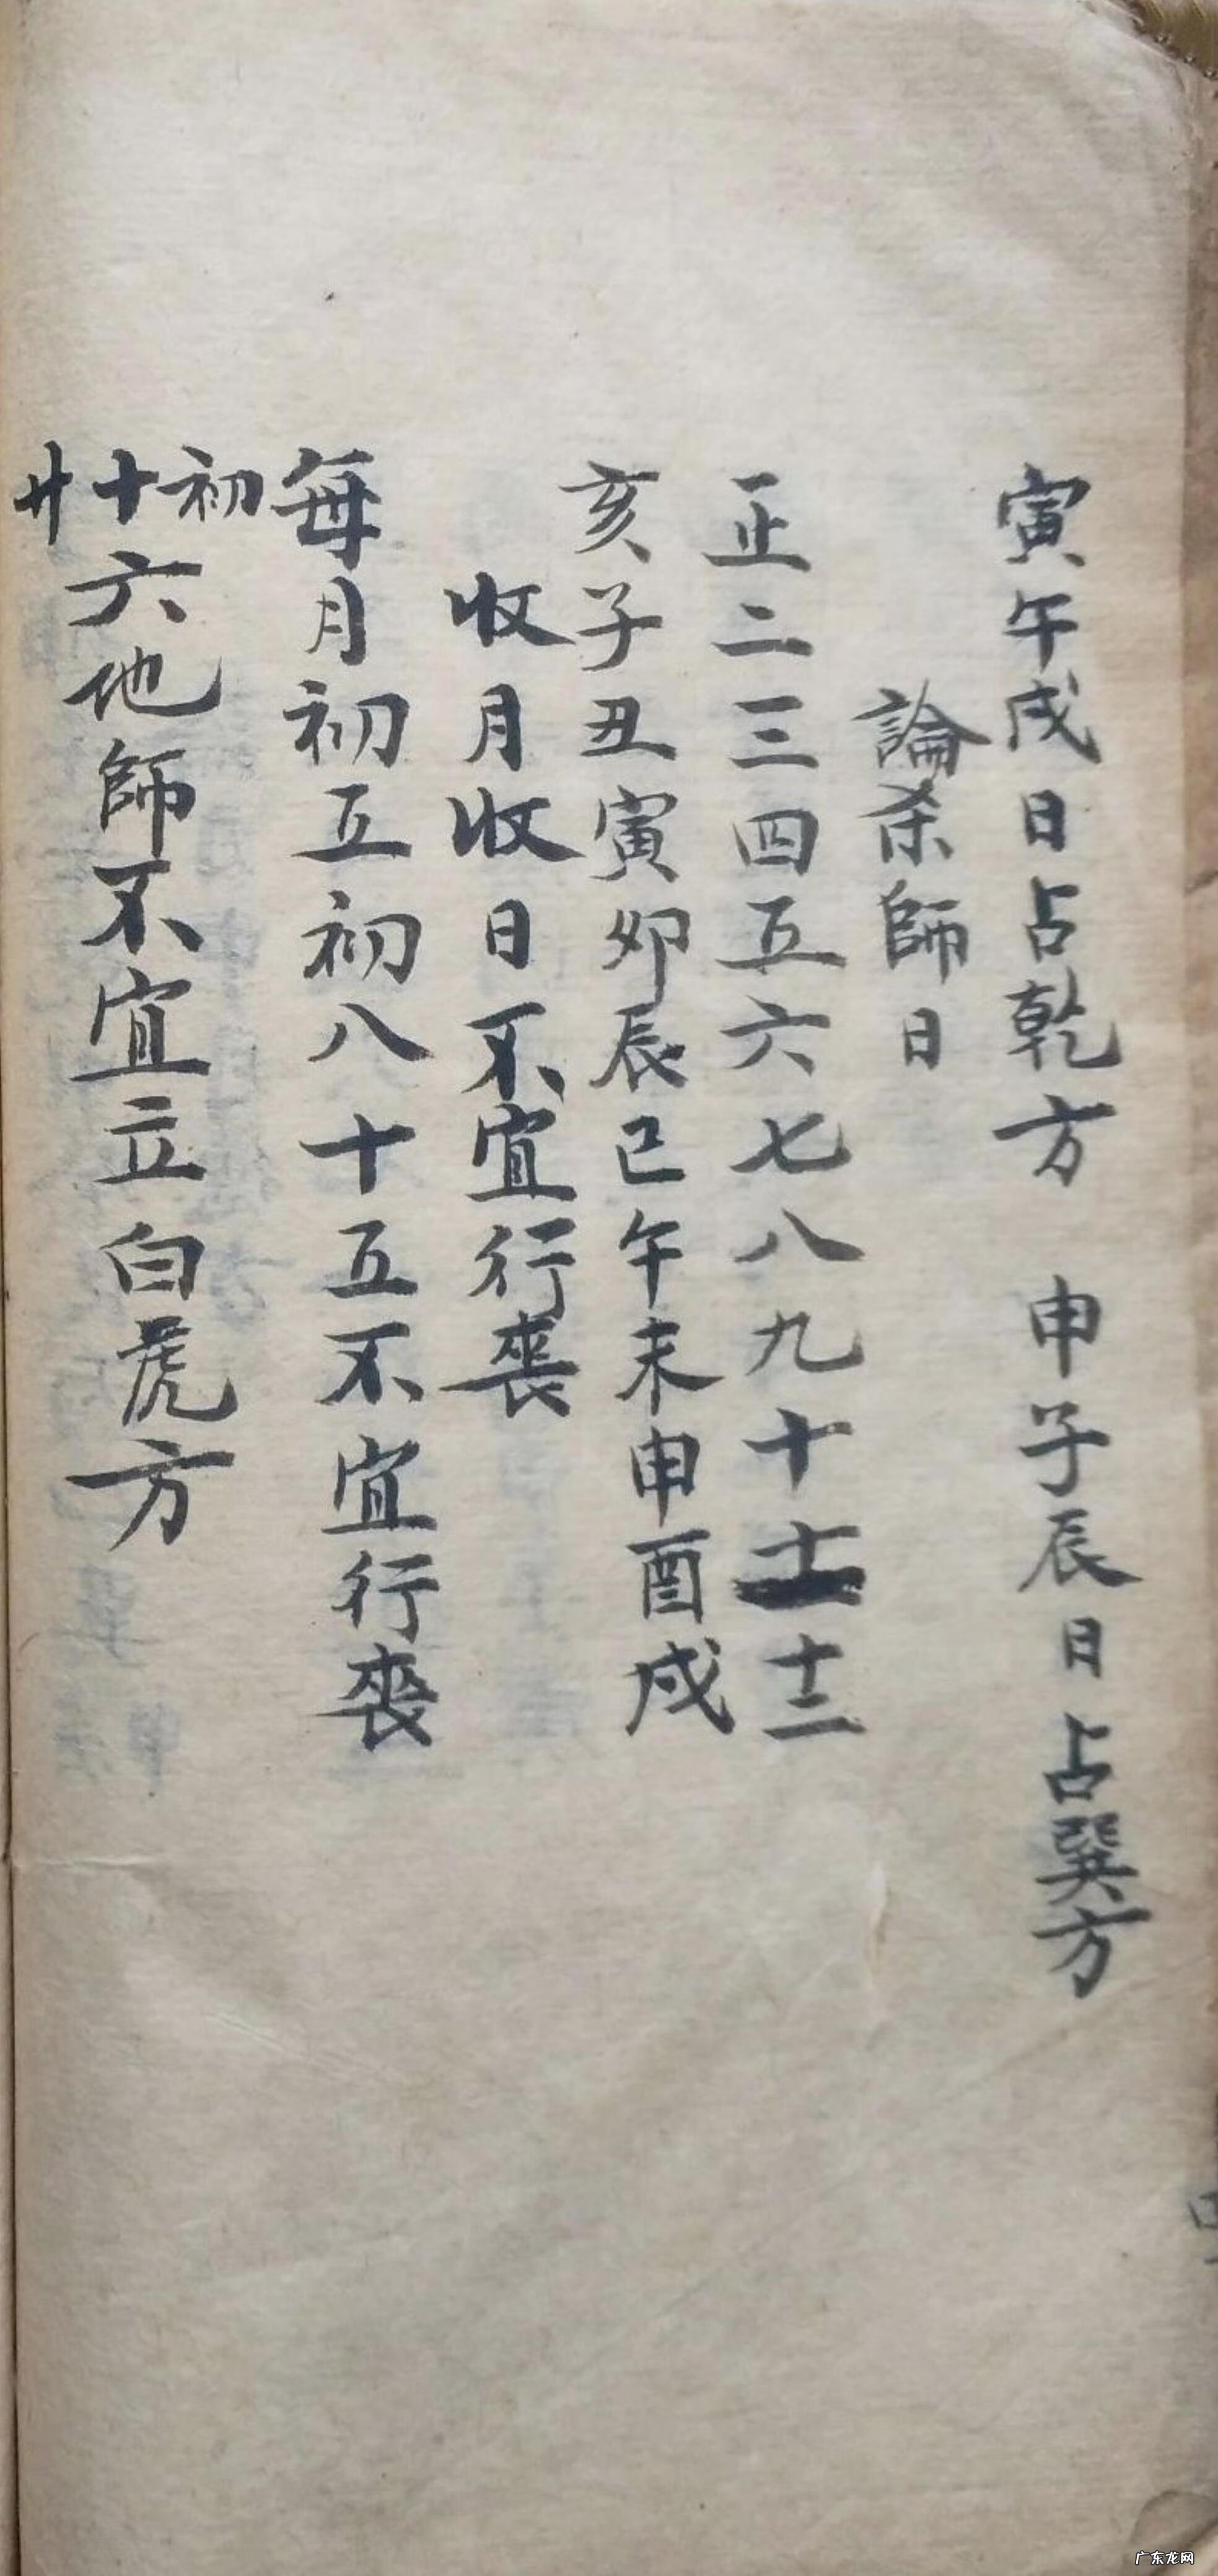 寅午戌日占乾方 申子辰日占巽方
論杀師日
正二三四五六七八九十十一十二
亥子丑寅卯辰巳午未申酉戌
收月收日不宜行丧
每月初五初八十五不宜行丧
初十廿六他師不宜立白虎方
广东龙网